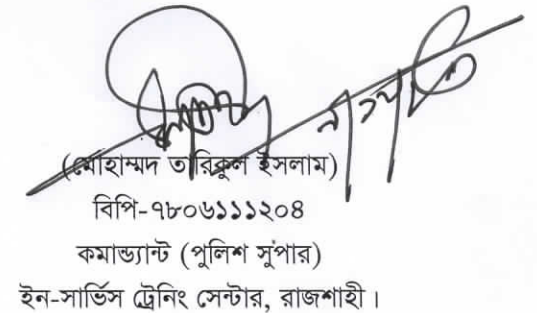 (মোহাম্মদ তারিকুল ইসলাম)
বিপি-৭৮০৬১১১২০৪
কমান্ড্যান্ট (পুলিশ সুপার)
ইন-সার্ভিস ট্রেনিং সেন্টার, রাজশাহী।